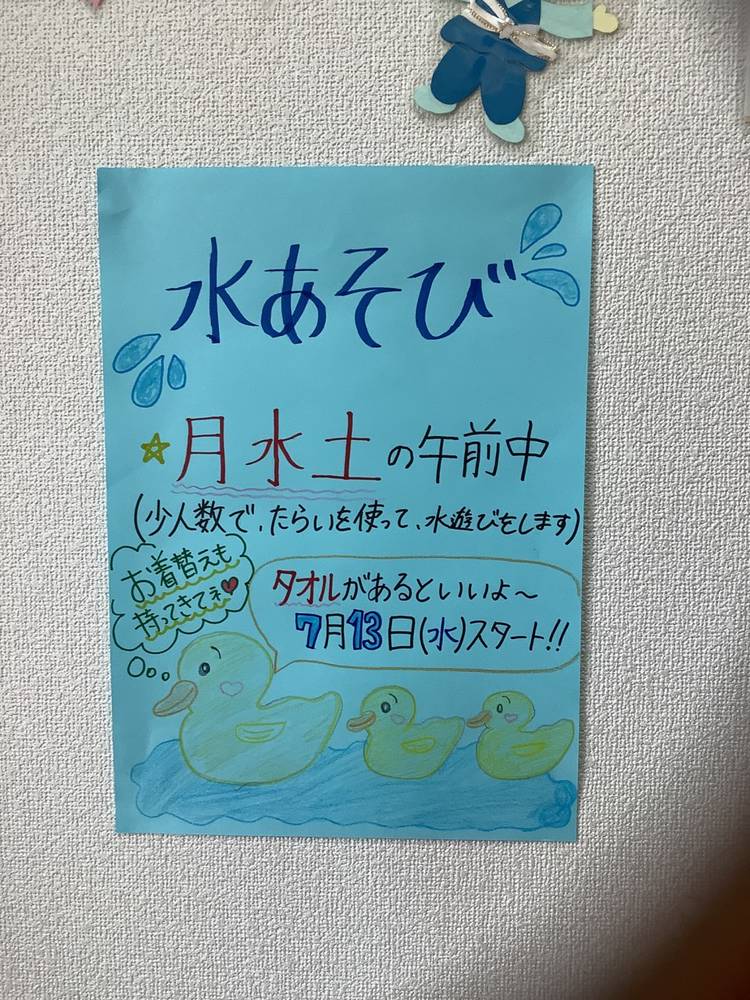 水あそび
☆月水土の午前中
(少人数で、たらいを使って、水遊びをします)
お着替えも
持ってきてネ♥
タオルがあるといいよ～
7月13日(水)スタート!!